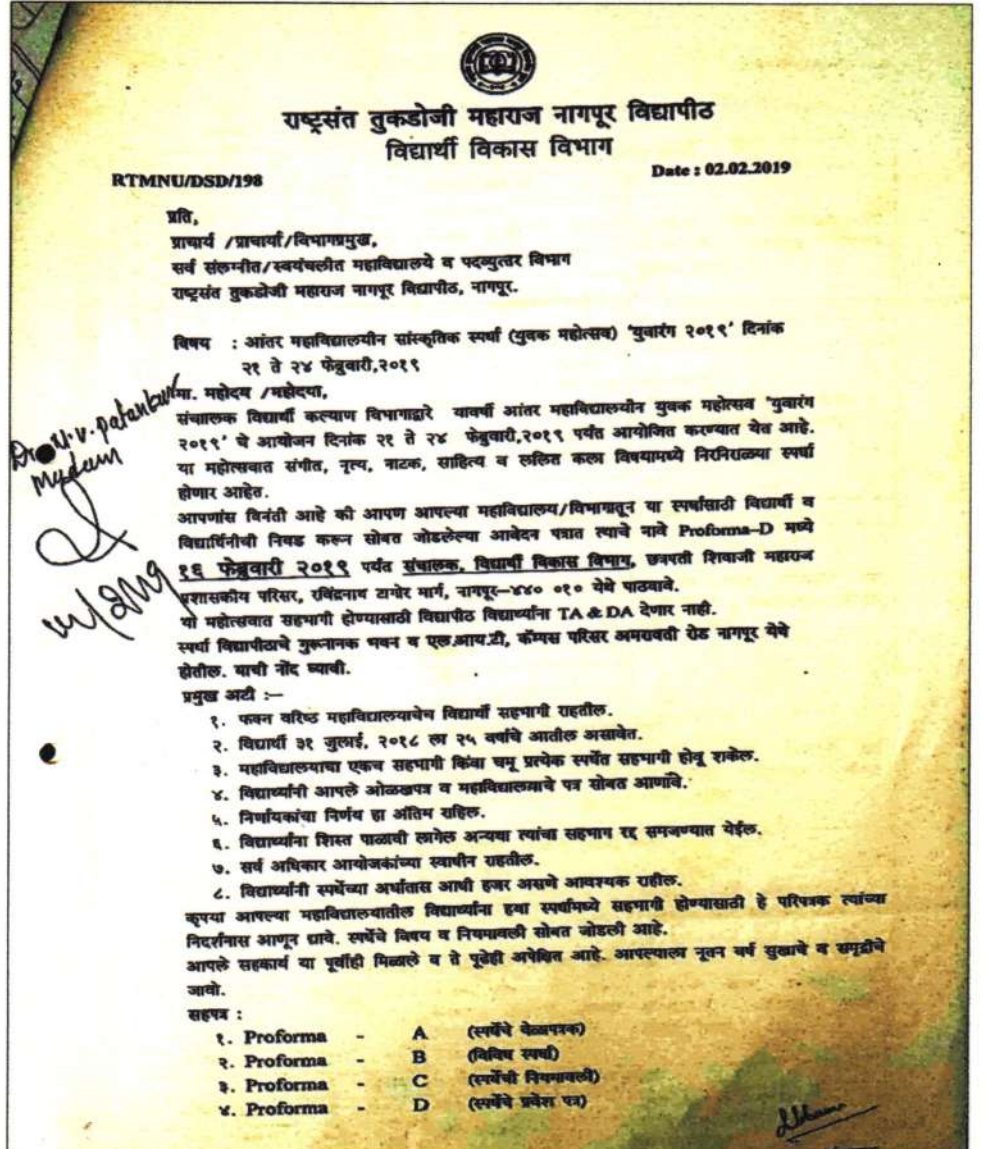 राष्ट्रसंत तुकडोजी महाराज नागपूर विद्यापीठ
विद्यार्थी विकास विभाग
RTMNU/DSD/198
Date : 02.02.2019
प्रति,
प्राचार्य /प्राचार्या/विभागप्रमुख,
सर्व संलग्नीत/स्वयंचलीत महाविद्यालये व पदव्युत्तर विभाग
राष्ट्रसंत तुकडोजी महाराज नागपूर विद्यापीठ, नागपूर.
विषय : आंतर महाविद्यालयीन सांस्कृतिक स्पर्धा (युवक महोत्सव) 'युवारंग २०१९' दिनांक
२१ ते २४ फेब्रुवारी,२०१९
मा. महोदय /महोदया,
संचालक विद्यार्थी कल्याण विभागाद्वारे यावर्षी आंतर महाविद्यालयीन युवक महोत्सव 'युवारंग
२०१९' चे आयोजन दिनांक २१ ते २४ फेब्रुवारी,२०१९ पर्यंत आयोजित करण्यात येत आहे.
या महोत्सवात संगीत, नृत्य, नाटक, साहित्य व ललित कला विषयामध्ये निरनिराळ्या स्पर्धा
होणार आहेत.
आपणांस विनंती आहे की आपण आपल्या महाविद्यालय/विभागातून या स्पर्धांसाठी विद्यार्थी व
विद्यार्थिनीची निवड करून सोबत जोडलेल्या आवेदन पत्रात त्याचे नावे Proforma-D मध्ये
१६ फेब्रुवारी २०१९ पर्यंत संचालक, विद्यार्थी विकास विभाग, छत्रपती शिवाजी महाराज
प्रशासकीय परिसर, रविंद्रनाथ टागोर मार्ग, नागपूर-४४० ०१० येथे पाठवावे.
यो महोत्सवात सहभागी होण्यासाठी विद्यापीठ विद्यार्थ्यांना TA & DA देणार नाही.
स्पर्धा विद्यापीठाचे गुरूनानक भवन व एल.आय.टी, कॅम्पस परिसर अमरावती रोड नागपूर येथे
होतील. याची नोंद घ्यावी.
प्रमुख अटी :-
१. फक्त वरिष्ठ महाविद्यालयाचेच विद्यार्थी सहभागी राहतील.
२. विद्यार्थी ३१ जुलाई, २०१८ ला २५ वर्षाचे आतील असावेत.
३. महाविद्यालयाचा एकच सहभागी किंवा चमू प्रत्येक स्पर्धेत सहभागी होवू शकेल.
४. विद्यार्थ्यांनी आपले ओळखपत्र व महाविद्यालयाचे पत्र सोबत आणावे.
५. निर्णायकांचा निर्णय हा अंतिम राहिल.
६. विद्यार्थ्यांना शिस्त पाळावी लागेल अन्यथा त्यांचा सहभाग रद्द समजण्यात येईल.
७. सर्व अधिकार आयोजकांच्या स्वाधीन राहतील.
८. विद्यार्थ्यांनी स्पर्धेच्या अर्धातास आधी हजर असणे आवश्यक राहील.
कृपया आपल्या महाविद्यालयातील विद्यार्थ्यांना हया स्पर्धामध्ये सहभागी होण्यासाठी हे परिपत्रक त्यांच्या
निदर्शनास आणून द्यावे. स्पर्धेचे विषय व नियमावली सोबत जोडली आहे.
आपले सहकार्य या पूर्वीही मिळाले व ते पूढेही अपेक्षित आहे. आपल्याला नूतन वर्ष सुखाचे व समृद्धीचे
जावो.
सहपत्र :
१. Proforma - A (स्पर्धेचे वेळापत्रक)
२. Proforma - B (विविध स्पर्धा)
३. Proforma - C (स्पर्धेची नियमावली)
४. Proforma - D (स्पर्धेचे प्रवेश पत्र)
Madam